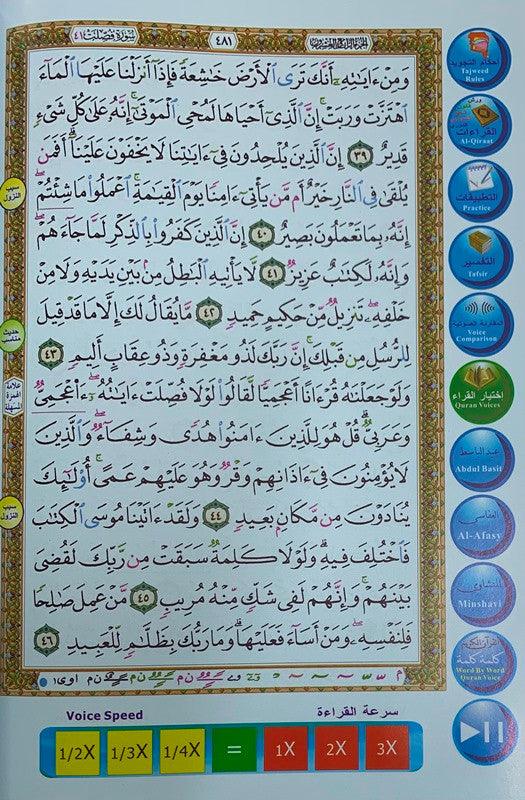 سورة فصلت ٤١
٤٨١
الجزء الرابع والعشرون
وَمِنْ ءَايَٰتِهِۦٓ أَنَّكَ تَرَى ٱلْأَرْضَ خَٰشِعَةً فَإِذَآ أَنزَلْنَا عَلَيْهَا ٱلْمَآءَ
ٱهْتَزَّتْ وَرَبَتْ إِنَّ ٱلَّذِىٓ أَحْيَاهَا لَمُحْىِ ٱلْمَوْتَىٰٓ إِنَّهُۥ عَلَىٰ كُلِّ شَىْءٍ
قَدِيرٌ ٣٩ إِنَّ ٱلَّذِينَ يُلْحِدُونَ فِىٓ ءَايَٰتِنَا لَا يَخْفَوْنَ عَلَيْنَآ أَفَمَن
يُلْقَىٰ فِى ٱلنَّارِ خَيْرٌ أَم مَّن يَأْتِىٓ ءَامِنًا يَوْمَ ٱلْقِيَٰمَةِ ٱعْمَلُوا۟ مَا شِئْتُمْ
إِنَّهُۥ بِمَا تَعْمَلُونَ بَصِيرٌ ٤٠ إِنَّ ٱلَّذِينَ كَفَرُوا۟ بِٱلذِّكْرِ لَمَّا جَآءَهُمْ
وَإِنَّهُۥ لَكِتَٰبٌ عَزِيزٌ ٤١ لَّا يَأْتِيهِ ٱلْبَٰطِلُ مِنۢ بَيْنِ يَدَيْهِ وَلَا مِنْ
خَلْفِهِۦ تَنزِيلٌ مِّنْ حَكِيمٍ حَمِيدٍ ٤٢ مَّا يُقَالُ لَكَ إِلَّا مَا قَدْ قِيلَ
لِلرُّسُلِ مِن قَبْلِكَ إِنَّ رَبَّكَ لَذُو مَغْفِرَةٍ وَذُو عِقَابٍ أَلِيمٍ ٤٣
وَلَوْ جَعَلْنَٰهُ قُرْءَانًا أَعْجَمِيًّا لَّقَالُوا۟ لَوْلَا فُصِّلَتْ ءَايَٰتُهُۥٓ ءَا۬عْجَمِىٌّ
وَعَرَبِىٌّ قُلْ هُوَ لِلَّذِينَ ءَامَنُوا۟ هُدًى وَشِفَآءٌ وَٱلَّذِينَ
لَا يُؤْمِنُونَ فِىٓ ءَاذَانِهِمْ وَقْرٌ وَهُوَ عَلَيْهِمْ عَمًى أُو۟لَٰٓئِكَ
يُنَادَوْنَ مِن مَّكَانٍۭ بَعِيدٍ ٤٤ وَلَقَدْ ءَاتَيْنَا مُوسَى ٱلْكِتَٰبَ
فَٱخْتُلِفَ فِيهِ وَلَوْلَا كَلِمَةٌ سَبَقَتْ مِن رَّبِّكَ لَقُضِىَ
بَيْنَهُمْ وَإِنَّهُمْ لَفِى شَكٍّ مِّنْهُ مُرِيبٍ ٤٥ مَّنْ عَمِلَ صَٰلِحًا
فَلِنَفْسِهِۦ وَمَنْ أَسَآءَ فَعَلَيْهَا وَمَا رَبُّكَ بِظَلَّٰمٍ لِّلْعَبِيدِ ٤٦
سبب النزول
حديث مناسب
علامة الهمزة المسهلة
سبب النزول
أحكام التجويد
Tajweed Rules
القراءات
Al-Qiraat
التطبيقات
Practice
التفسير
Tafsir
المقارنة الصوتية
Voice Comparison
إختيار القراء
Quran Voices
عبد الباسط
Abdul Basit
العفاسي
Al-Afasy
المنشاوي
Minshavi
كلمة كلمة
Word By Word Quran Voice
Voice Speed
سرعة القراءة
1/2X 1/3X 1/4X = 1X 2X 3X